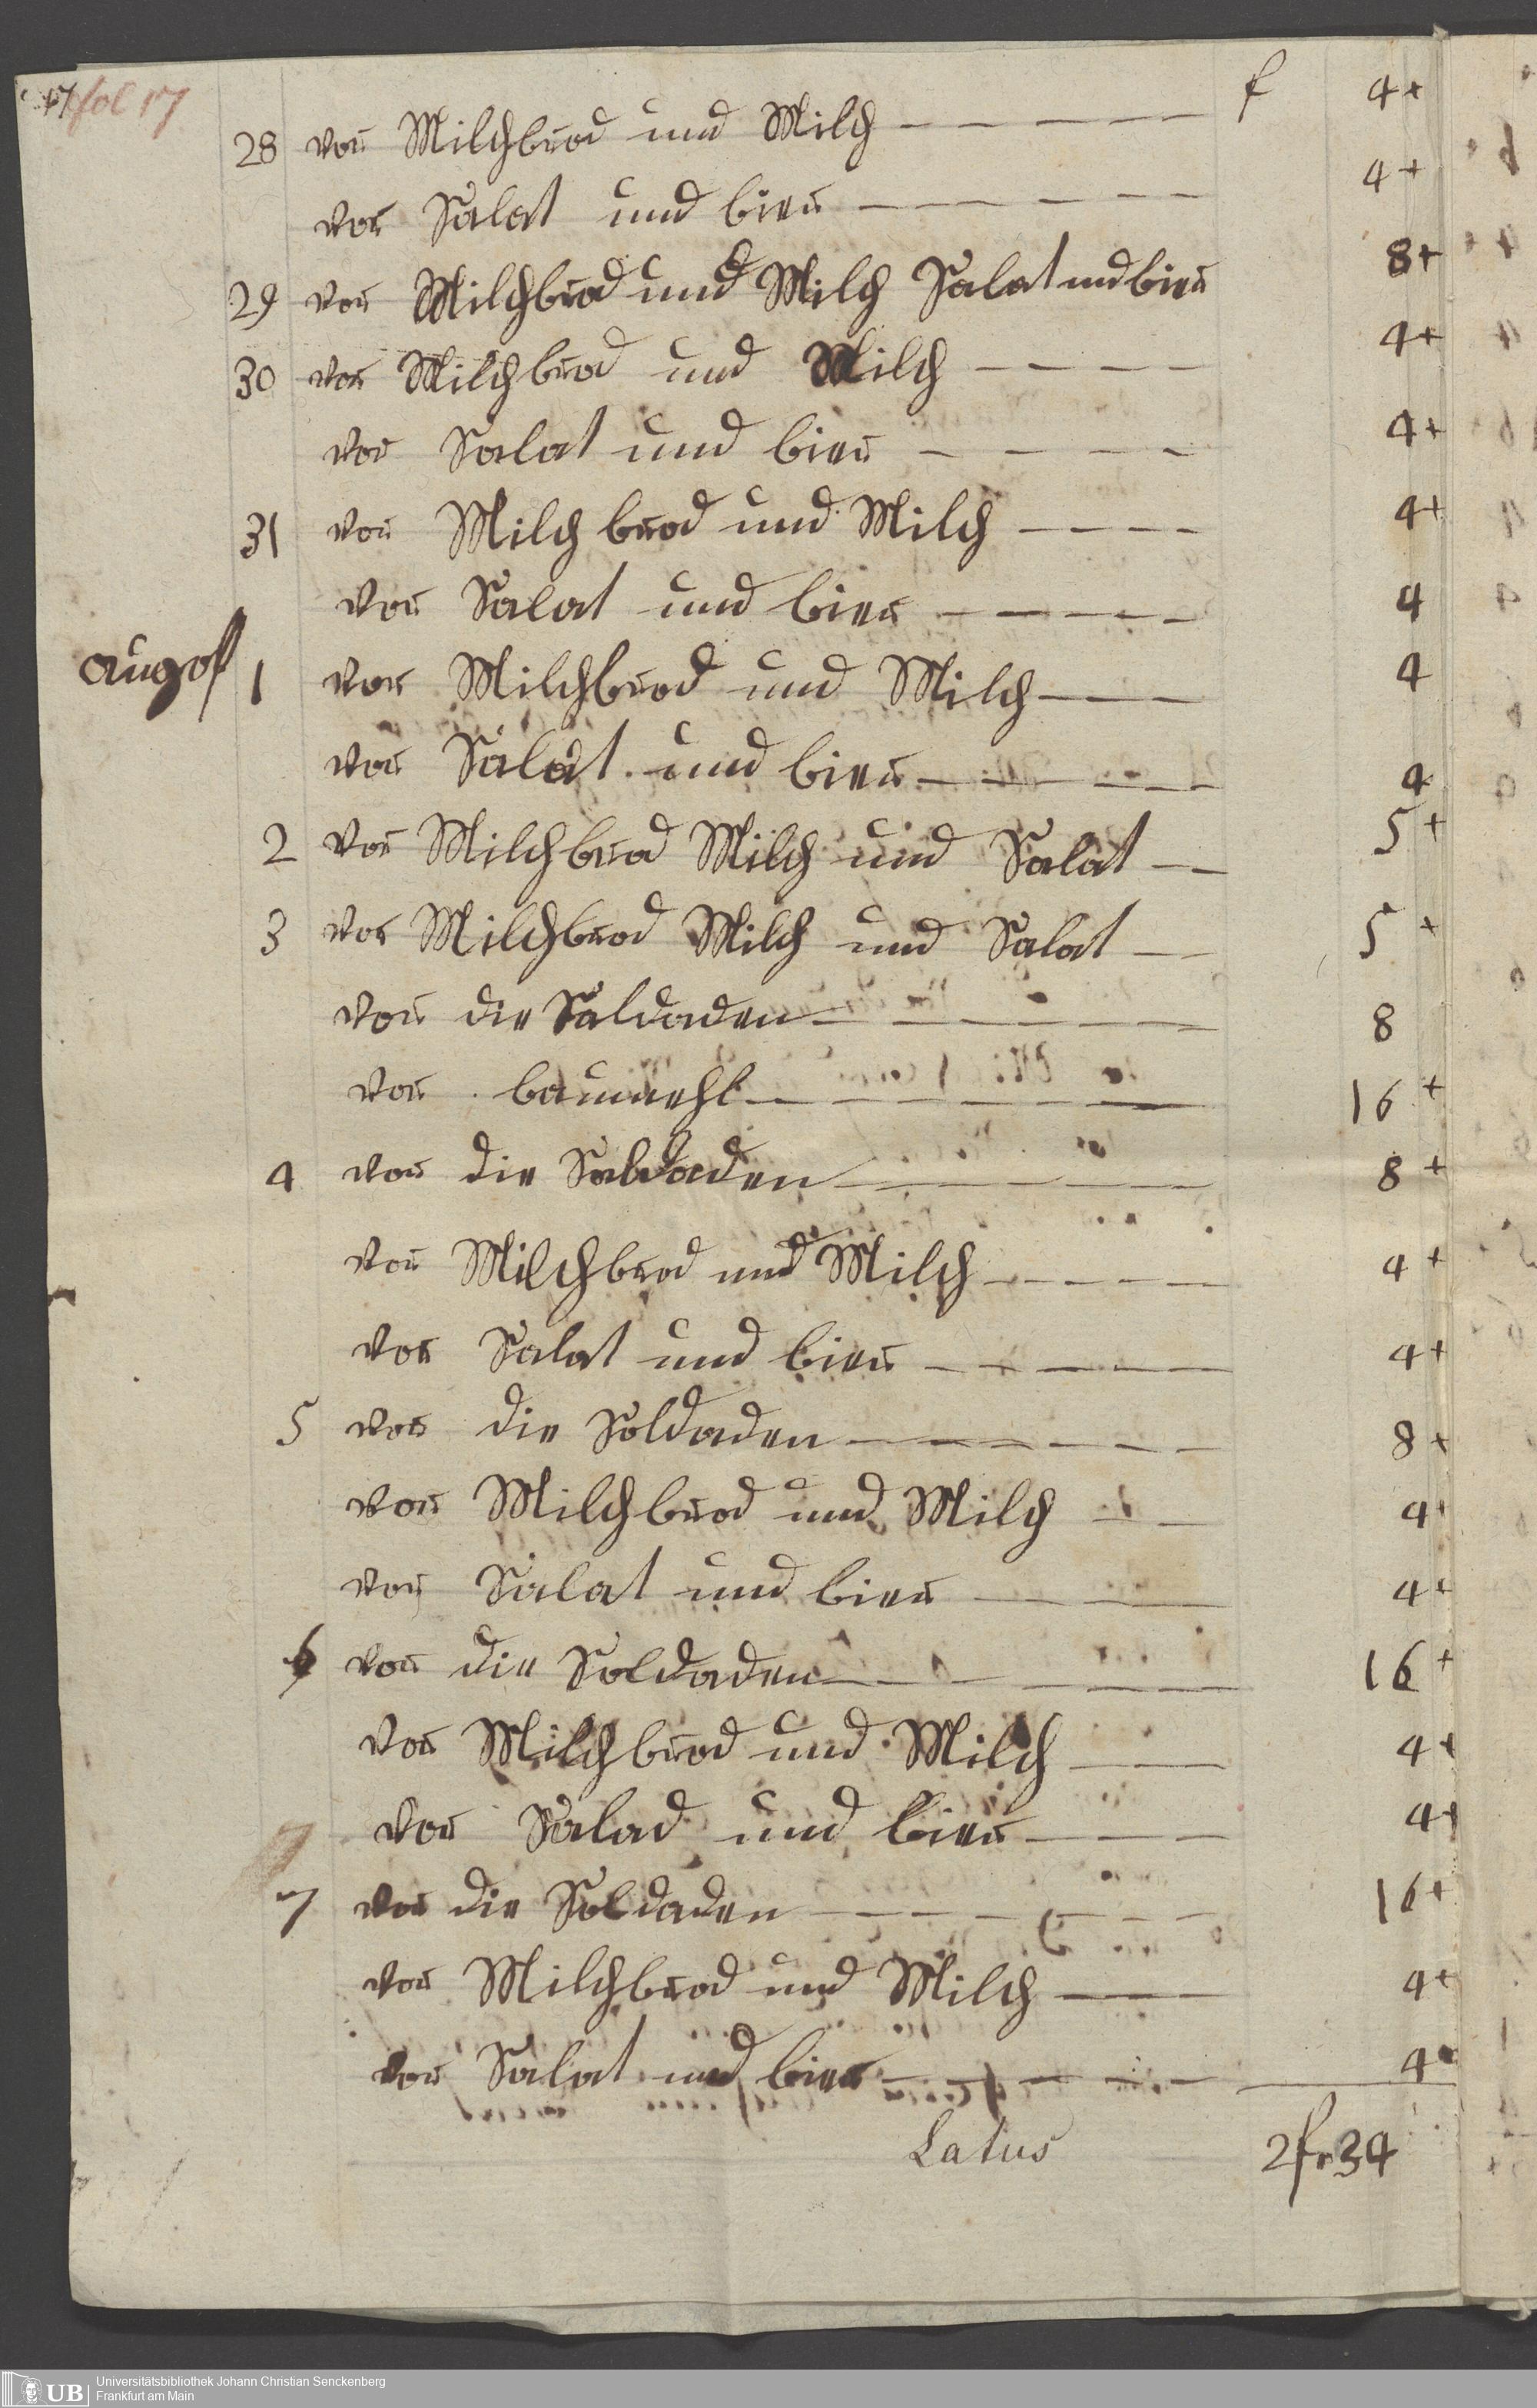 17 fol 17
f
28 vor Milchbrod und Milch - - - - - 4+
vor Salat und bier - - - - - - 4+
29 vor Milchbrod und Milch Salat und bier 8+
30 vor Milchbrod und Milch - - - - 4+
vor Salat und bier - - - - - 4+
31 vor Milchbrod und Milch - - - - 4+
vor Salat und bier - - - - - 4
augost 1 vor Milchbrod und Milch - - - 4
vor Salat und bier - - - - - 4
2 vor Milchbrod Milch und Salat - - 5+
3 vor Milchbrod Milch und Salat - - 5+
vor die Saldaden - - - - - - 8
vor baumehl - - - - - - 16+
4 vor die Saldaden - - - - - - 8+
vor Milchbrod und Milch - - - - 4+
vor Salat und bier - - - - - - 4+
5 vor die Soldaden - - - - - - 8+
vor Milchbrod und Milch - - 4+
vor Salat und bier - - - - 4+
6 vor die Soldaden - - - - - 16+
vor Milchbrod und Milch - - - 4+
vor Salad und bier - - - 4+
7 vor die Soldaden - - - - - - 16+
vor Milchbrod und Milch - - - 4+
vor Salat und bier - - - - - - 4+
Latus 2 fr 34
UB Universitätsbibliothek Johann Christian Senckenberg
Frankfurt am Main